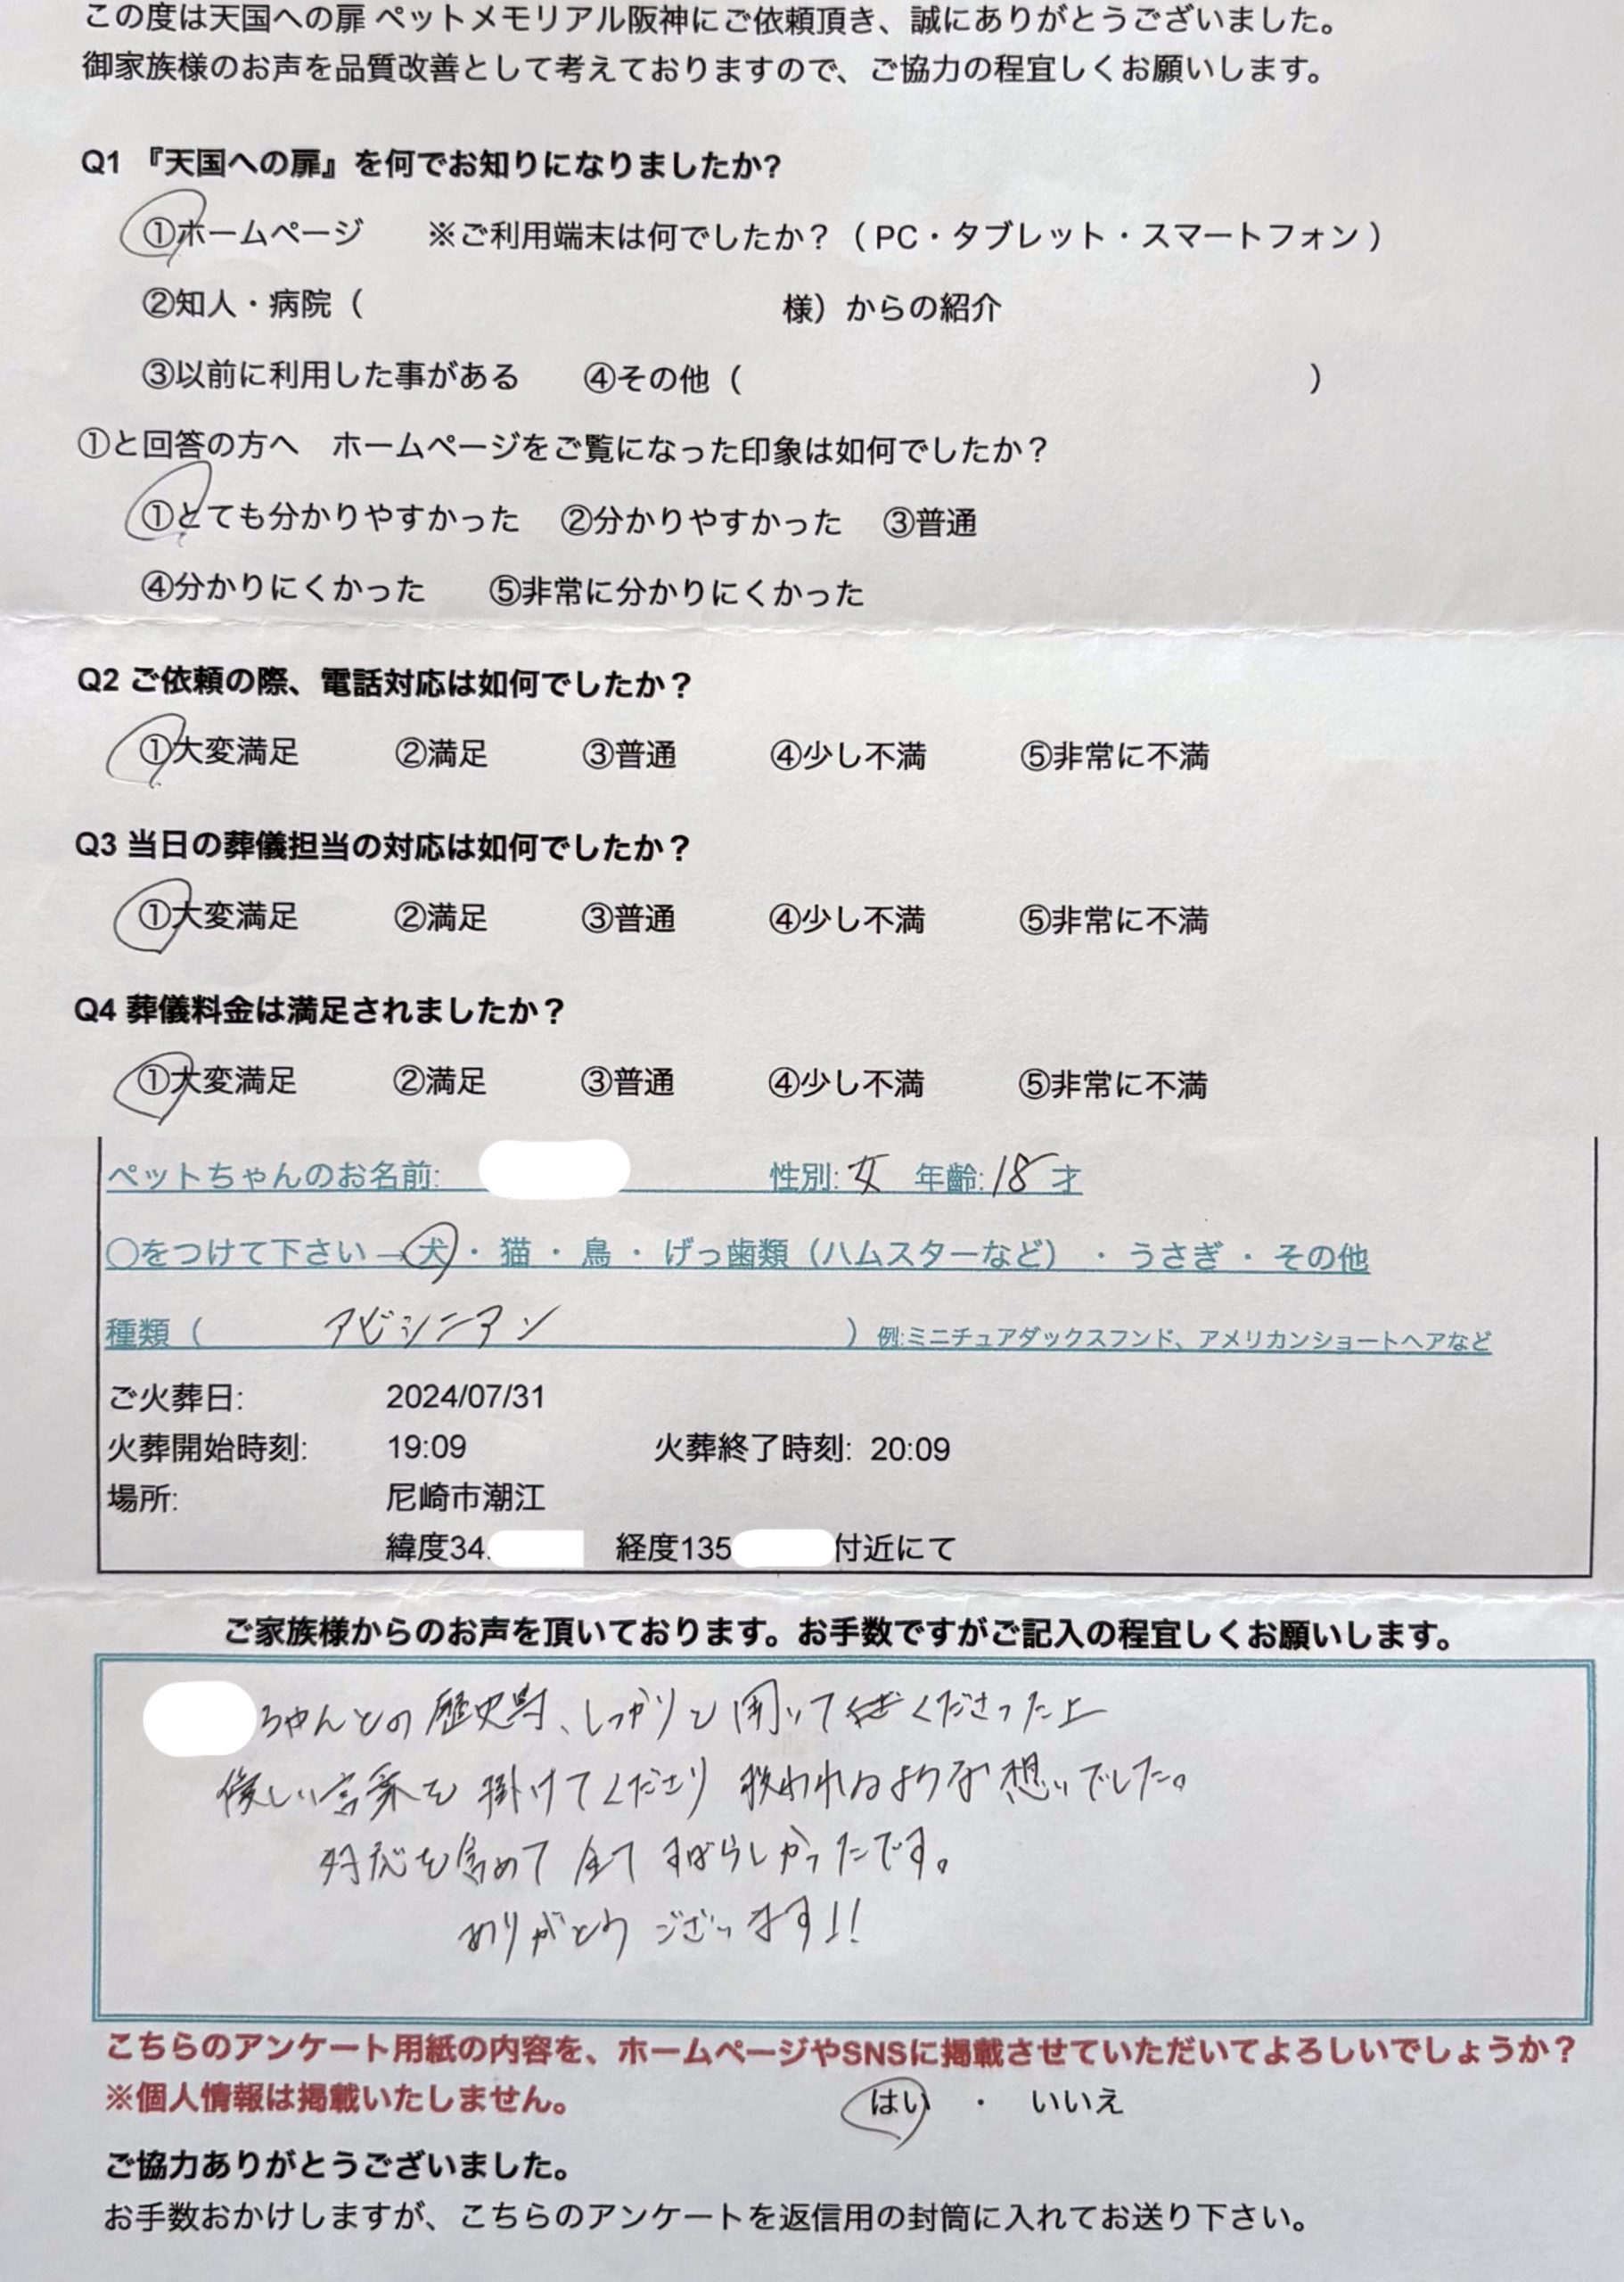 この度は天国への扉 ペットメモリアル阪神にご依頼頂き、誠にありがとうございました。
御家族様のお声を品質改善として考えておりますので、ご協力の程宜しくお願いします。
Q1 『天国への扉』を何でお知りになりましたか?
①ホームページ ※ご利用端末は何でしたか？（ PC・タブレット・スマートフォン ）
②知人・病院（ 様）からの紹介
③以前に利用した事がある ④その他（ ）
①と回答の方へ ホームページをご覧になった印象は如何でしたか？
①とても分かりやすかった ②分かりやすかった ③普通
④分かりにくかった ⑤非常に分かりにくかった
Q2 ご依頼の際、電話対応は如何でしたか？
①大変満足 ②満足 ③普通 ④少し不満 ⑤非常に不満
Q3 当日の葬儀担当の対応は如何でしたか？
①大変満足 ②満足 ③普通 ④少し不満 ⑤非常に不満
Q4 葬儀料金は満足されましたか？
①大変満足 ②満足 ③普通 ④少し不満 ⑤非常に不満
ペットちゃんのお名前: 性別: 女 年齢: 18 才
〇をつけて下さい→犬・猫・鳥・げっ歯類（ハムスターなど）・うさぎ・その他
種類（ アビシニアン ）例:ミニチュアダックスフンド、アメリカンショートヘアなど
ご火葬日: 2024/07/31
火葬開始時刻: 19:09 火葬終了時刻: 20:09
場所: 尼崎市潮江
緯度34. 経度135 付近にて
ご家族様からのお声を頂いております。お手数ですがご記入の程宜しくお願いします。
ちゃんとの歴史等、しっかりと聞いてくださった上
優しい言葉を掛けてくださり 救われるような想いでした。
対応を含めて 全て すばらしかったです。
ありがとう ございます!!
こちらのアンケート用紙の内容を、ホームページやSNSに掲載させていただいてよろしいでしょうか？
※個人情報は掲載いたしません。 はい ・ いいえ
ご協力ありがとうございました。
お手数おかけしますが、こちらのアンケートを返信用の封筒に入れてお送り下さい。